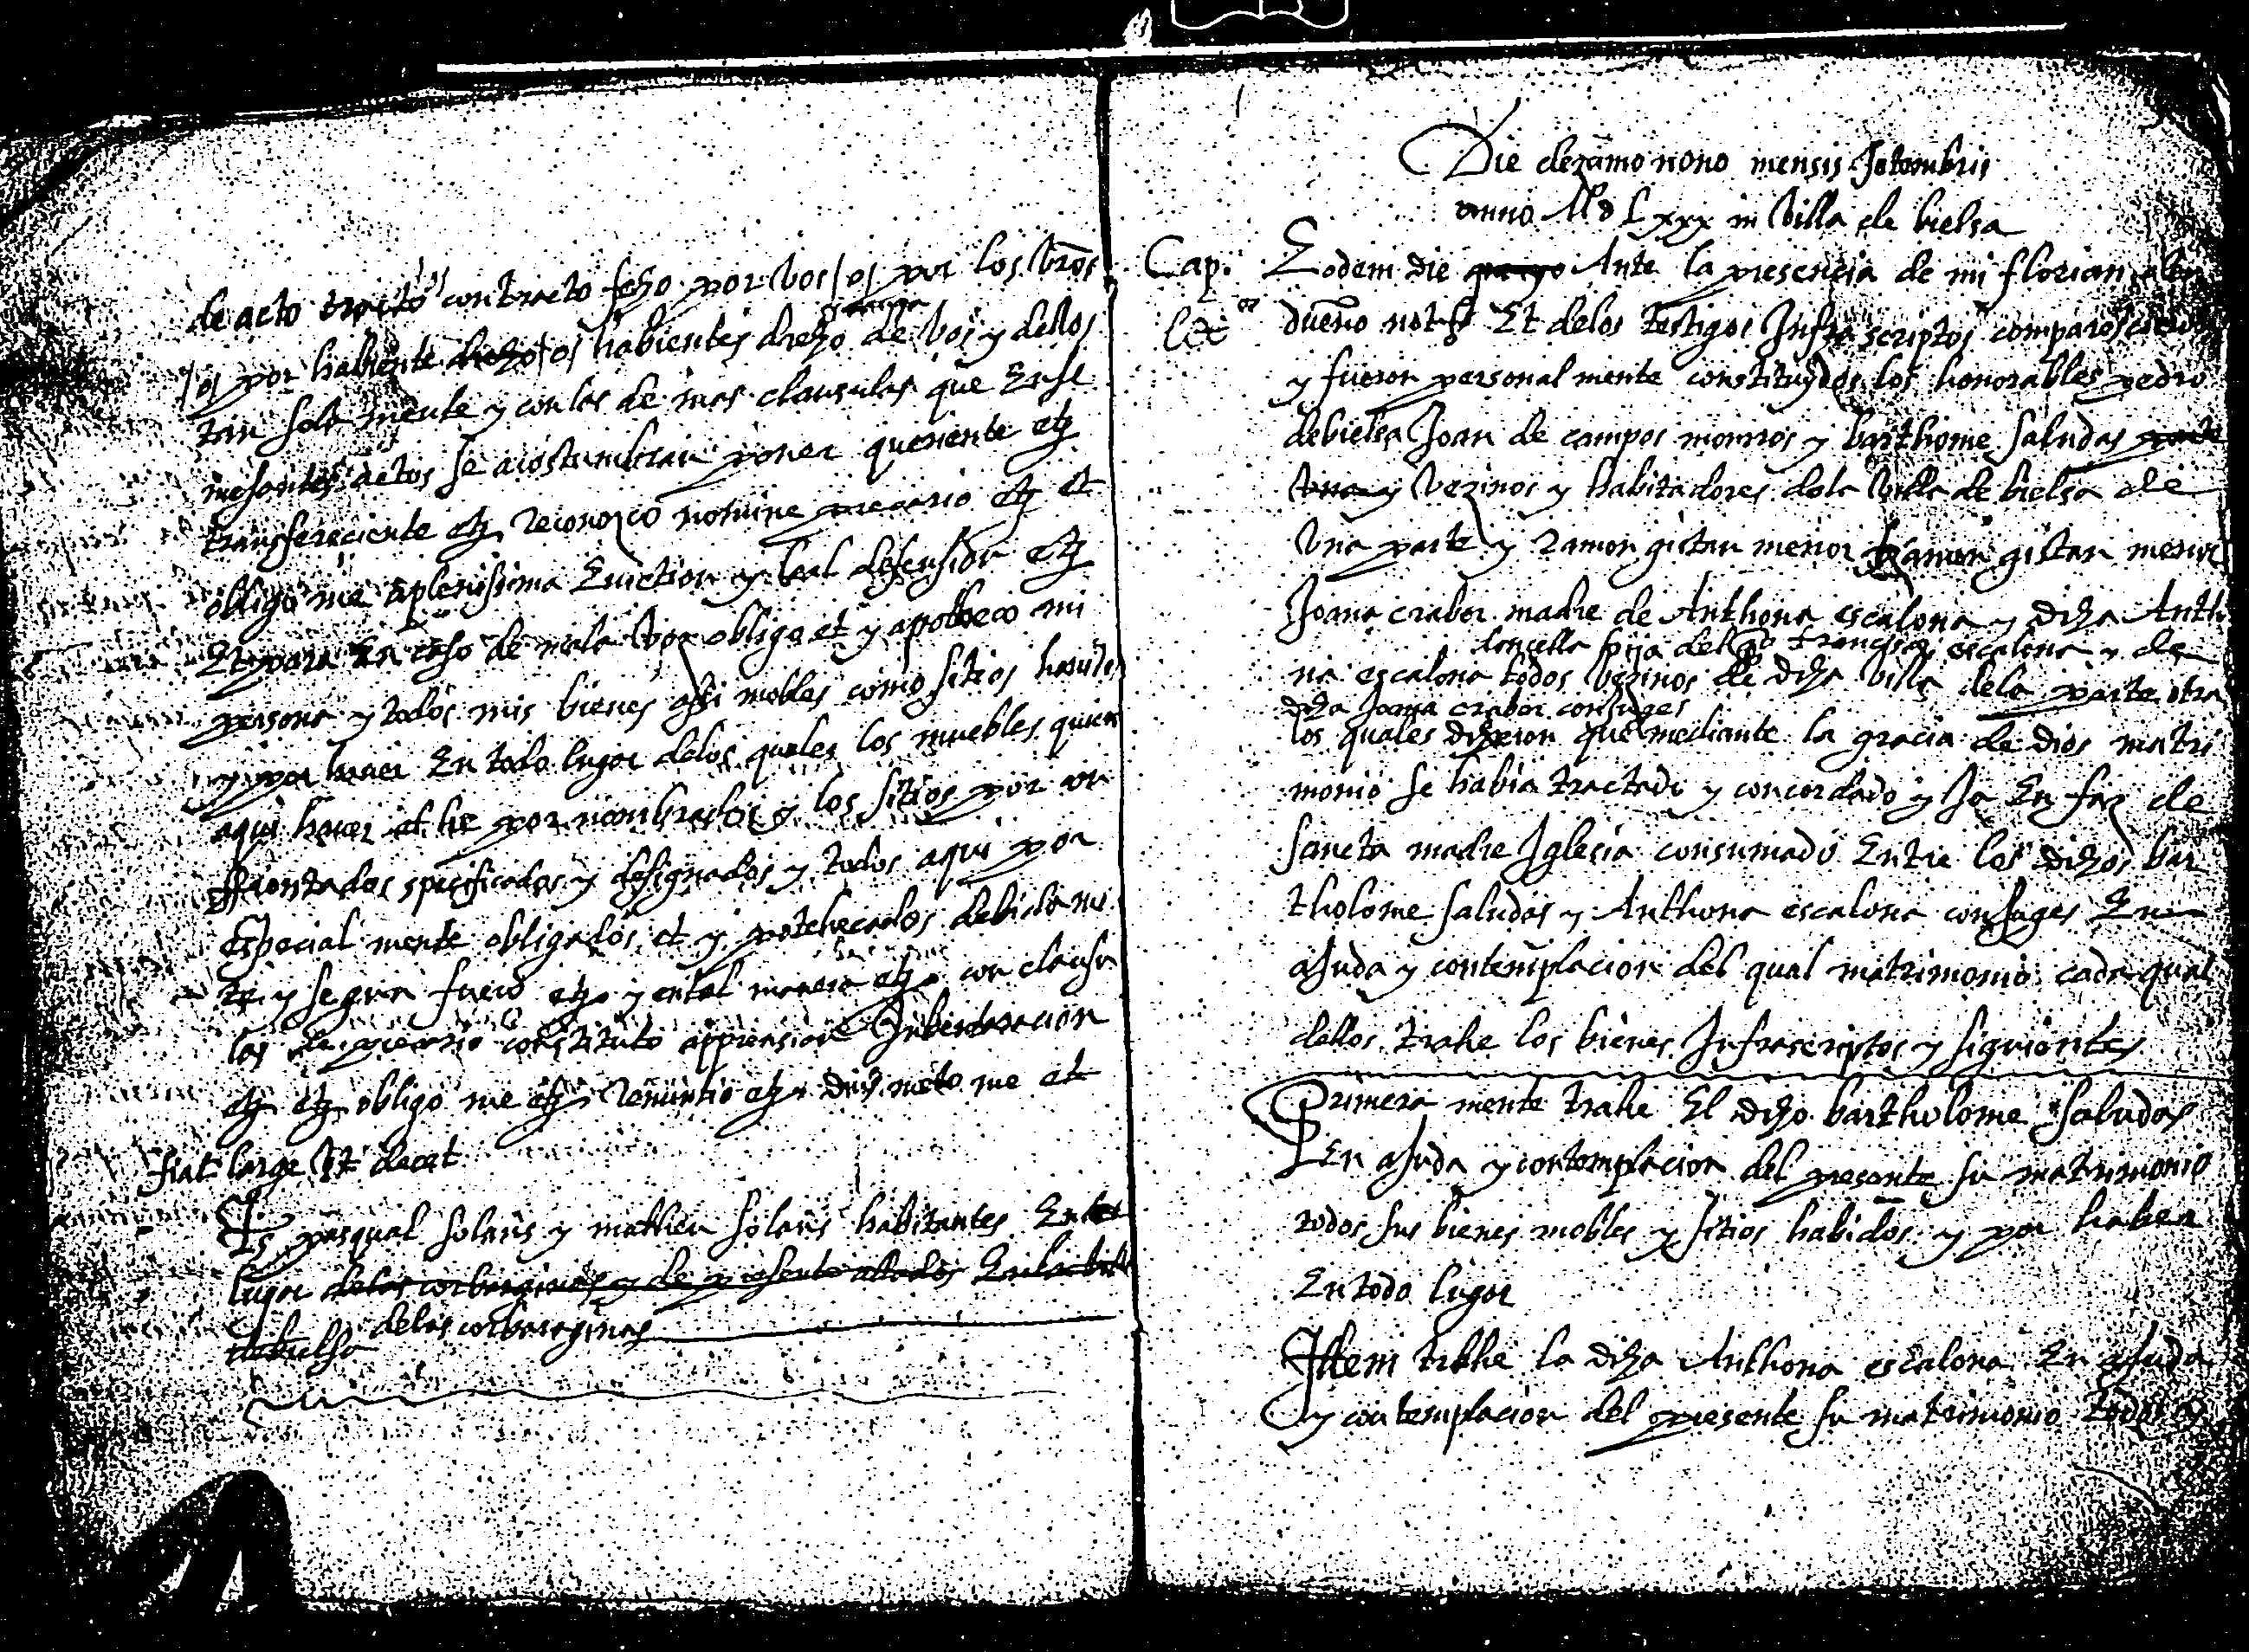 de acto tracto contracto fecho por vos /o/ por los vros
/o/ por habiente drecho /o/ habientes drecho de vos y dellos
tan sola mente y con las de mas clausulas que en se
mejantes actos se acostumbran poner queriente etz
transfereciente etz reconozco nomine precario etz et
obligo me a plenissima eviction y leal defension etz
Et para en caso de mala voz obligo et y apotheco mi
persona y todos mis bienes assi mobles como sitios havidos
y por haver en todo lugar delos quales los muebles quiero
aqui haver et he por nombrados y los sitios por con
frontados specificados y designados y todos aqui por
especial mente obligados et y potehecados debida me
te y segun fuero etz y en tal manera etz con clausu
las de precario constituto apprension Inbentaracion
etz etz obligo me etz renuntio etz meto me et
fiat large ut decet
Ts pasqual solans y matheu solans habitantes en
lugar delas corbaraginas y de presente en la villa
de bielsa delas corbaraginas
Die dezimo nono mensis Setembris
anno M D Lxxx in Villa de bielsa
Cap. Eodem die Ante la presencia de mi florian
dueño not Et delos testigos Infra scriptos
y fueron personal mente constituydos los honorables pedro
de bielsa Joan de campos monrros y barthome saludas parte
una y vezinos y habitadores dela villa de bielsa de
una parte y ramon gistau menor ramon gistau menor
Joana crabor madre de Anthona escalona y dicha Antho
doncella hija del francisco escalona y de
na escalona todos vezinos de dicha villa dela parte otra
dicha Joana crabor conjuges
los quales dixeron que mediante la gracia de dios matri
monio se habia tractado y concordado y ja en faz de
sancta madre Iglesia consumado entre los dichos bar
tholome saludas y Anthona escalona conjuges En
ajuda y contemplacion del qual matrimonio cada qual
dellos trahe los bienes Infrascriptos y siguientes
Primera mente trahe El dicho bartholome saludas
En ajuda y contemplacion del presente su matrimonio
todos sus bienes mobles y sitios habidos y por haber
En todo lugar
Ittem trahe la dicha Anthona escalona En ajuda
y contemplacion del presente su matrimonio todos